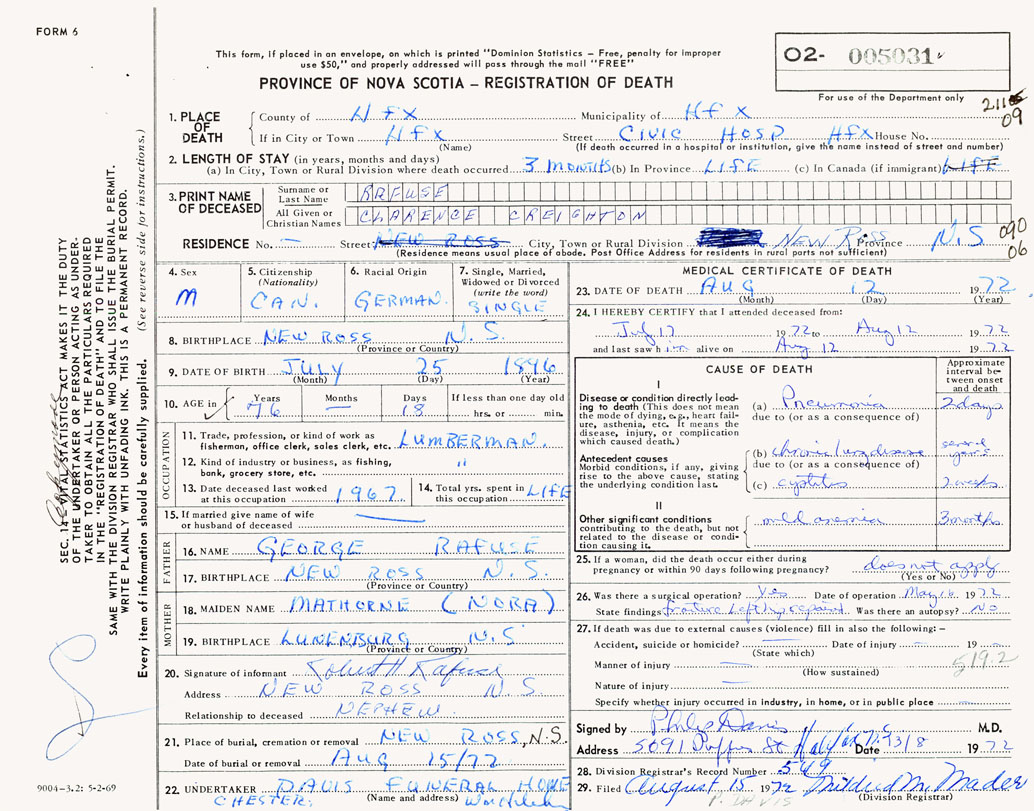 FORM 6
This form, if placed in an envelope, on which is printed "Dominion Statistics – Free, penalty for improper
use $50," and properly addressed will pass through the mail "FREE"
PROVINCE OF NOVA SCOTIA – REGISTRATION OF DEATH
O2- 005031
For use of the Department only
09
1. PLACE OF DEATH
County of HFX Municipality of HFX
If in City or Town HFX Street CIVIC HOSP HFX House No.
(Name) (If death occurred in a hospital or institution, give the name instead of street and number)
2. LENGTH OF STAY (in years, months and days)
(a) In City, Town or Rural Division where death occurred 3 MONTHS (b) In Province LIFE (c) In Canada (if immigrant) LIFE
3. PRINT NAME OF DECEASED
Surname or Last Name RAFUSE
All Given or Christian Names CLARENCE CREIGHTON
RESIDENCE No. — Street NEW ROSS City, Town or Rural Division NEW ROSS Province N.S
090
06
(Residence means usual place of abode. Post Office Address for residents in rural parts not sufficient)
4. Sex M
5. Citizenship (Nationality) CAN.
6. Racial Origin GERMAN.
7. Single, Married, Widowed or Divorced (write the word) SINGLE
8. BIRTHPLACE NEW ROSS N.S.
(Province or Country)
9. DATE OF BIRTH JULY 25 1896
(Month) (Day) (Year)
10. AGE in Years 76 Months — Days 18 If less than one day old hrs. or min.
OCCUPATION
11. Trade, profession, or kind of work as fisherman, office clerk, sales clerk, etc. LUMBERMAN.
12. Kind of industry or business, as fishing, bank, grocery store, etc. "
13. Date deceased last worked at this occupation 1967
14. Total yrs. spent in this occupation LIFE
15. If married give name of wife or husband of deceased —
FATHER
16. NAME GEORGE RAFUSE
17. BIRTHPLACE NEW ROSS N.S.
(Province or Country)
MOTHER
18. MAIDEN NAME MATHORNE (NORA)
19. BIRTHPLACE LUNENBURG N.S
(Province or Country)
20. Signature of informant Robert H Rafuse
Address NEW ROSS N.S.
Relationship to deceased NEPHEW.
21. Place of burial, cremation or removal NEW ROSS, N.S.
Date of burial or removal AUG 15/72
22. UNDERTAKER DAVIS FUNERAL HOME
CHESTER. (Name and address)
MEDICAL CERTIFICATE OF DEATH
23. DATE OF DEATH AUG 12 1972
(Month) (Day) (Year)
24. I HEREBY CERTIFY that I attended deceased from:
July 17 1972 to Aug 12 1972
and last saw him alive on Aug 12 1972
CAUSE OF DEATH
Approximate interval between onset and death
I
Disease or condition directly leading to death (This does not mean the mode of dying, e.g., heart failure, asthenia, etc. It means the disease, injury, or complication which caused death.)
(a) Pneumonia 2 days
due to (or as a consequence of)
Antecedent causes
Morbid conditions, if any, giving rise to the above cause, stating the underlying condition last.
(b) chronic lung disease several years
due to (or as a consequence of)
(c) cystitis 2 weeks
II
Other significant conditions
contributing to the death, but not related to the disease or condition causing it.
mild anemia 3 months
25. If a woman, did the death occur either during pregnancy or within 90 days following pregnancy? does not apply
(Yes or No)
26. Was there a surgical operation? Yes Date of operation May 16 1972
State findings fracture left hip repaired Was there an autopsy? No
27. If death was due to external causes (violence) fill in also the following: –
Accident, suicide or homicide? — Date of injury — 19
(State which)
Manner of injury — 519.2
(How sustained)
Nature of injury —
Specify whether injury occurred in industry, in home, or in public place —
Signed by Philip Davis M.D.
Address 5091 St Halifax N.S. Date 1972
28. Division Registrar's Record Number 549
29. Filed August 15 1972 Mildred M. Mader
P. DAVIS (Division Registrar)
SEC. 14 VITAL STATISTICS ACT MAKES IT THE DUTY
OF THE UNDERTAKER OR PERSON ACTING AS UNDER-
TAKER TO OBTAIN ALL THE PARTICULARS REQUIRED
IN THE "REGISTRATION OF DEATH" AND TO FILE THE
SAME WITH THE DIVISION REGISTRAR WHO SHALL ISSUE THE BURIAL PERMIT.
WRITE PLAINLY WITH UNFADING INK. THIS IS A PERMANENT RECORD.
Every item of information should be carefully supplied. (See reverse side for instructions.)
9004-3.2: 5-2-69